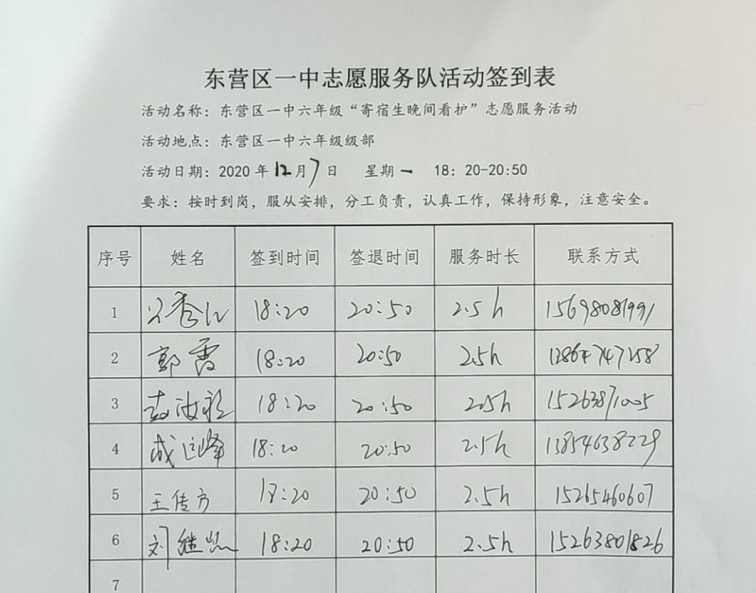 东营区一中志愿服务队活动签到表
活动名称：东营区一中六年级“寄宿生晚间看护”志愿服务活动
活动地点：东营区一中六年级级部
活动日期：2020 年 12月7日 星期一 18：20-20:50
要求：按时到岗，服从安排，分工负责，认真工作，保持形象，注意安全。
序号 姓名 签到时间 签退时间 服务时长 联系方式
1 18:20 20:50 2.5h 15698081991
2 郭霞 18:20 20:50 2.5h
3 18:20 20:50 2.5h 15263871005
4 成 峰 18:20 20:50 2.5h 13854638229
5 王传方 18:20 20:50 2.5h 15265460607
6 刘继 18:20 20:50 2.5h 15263801826
7